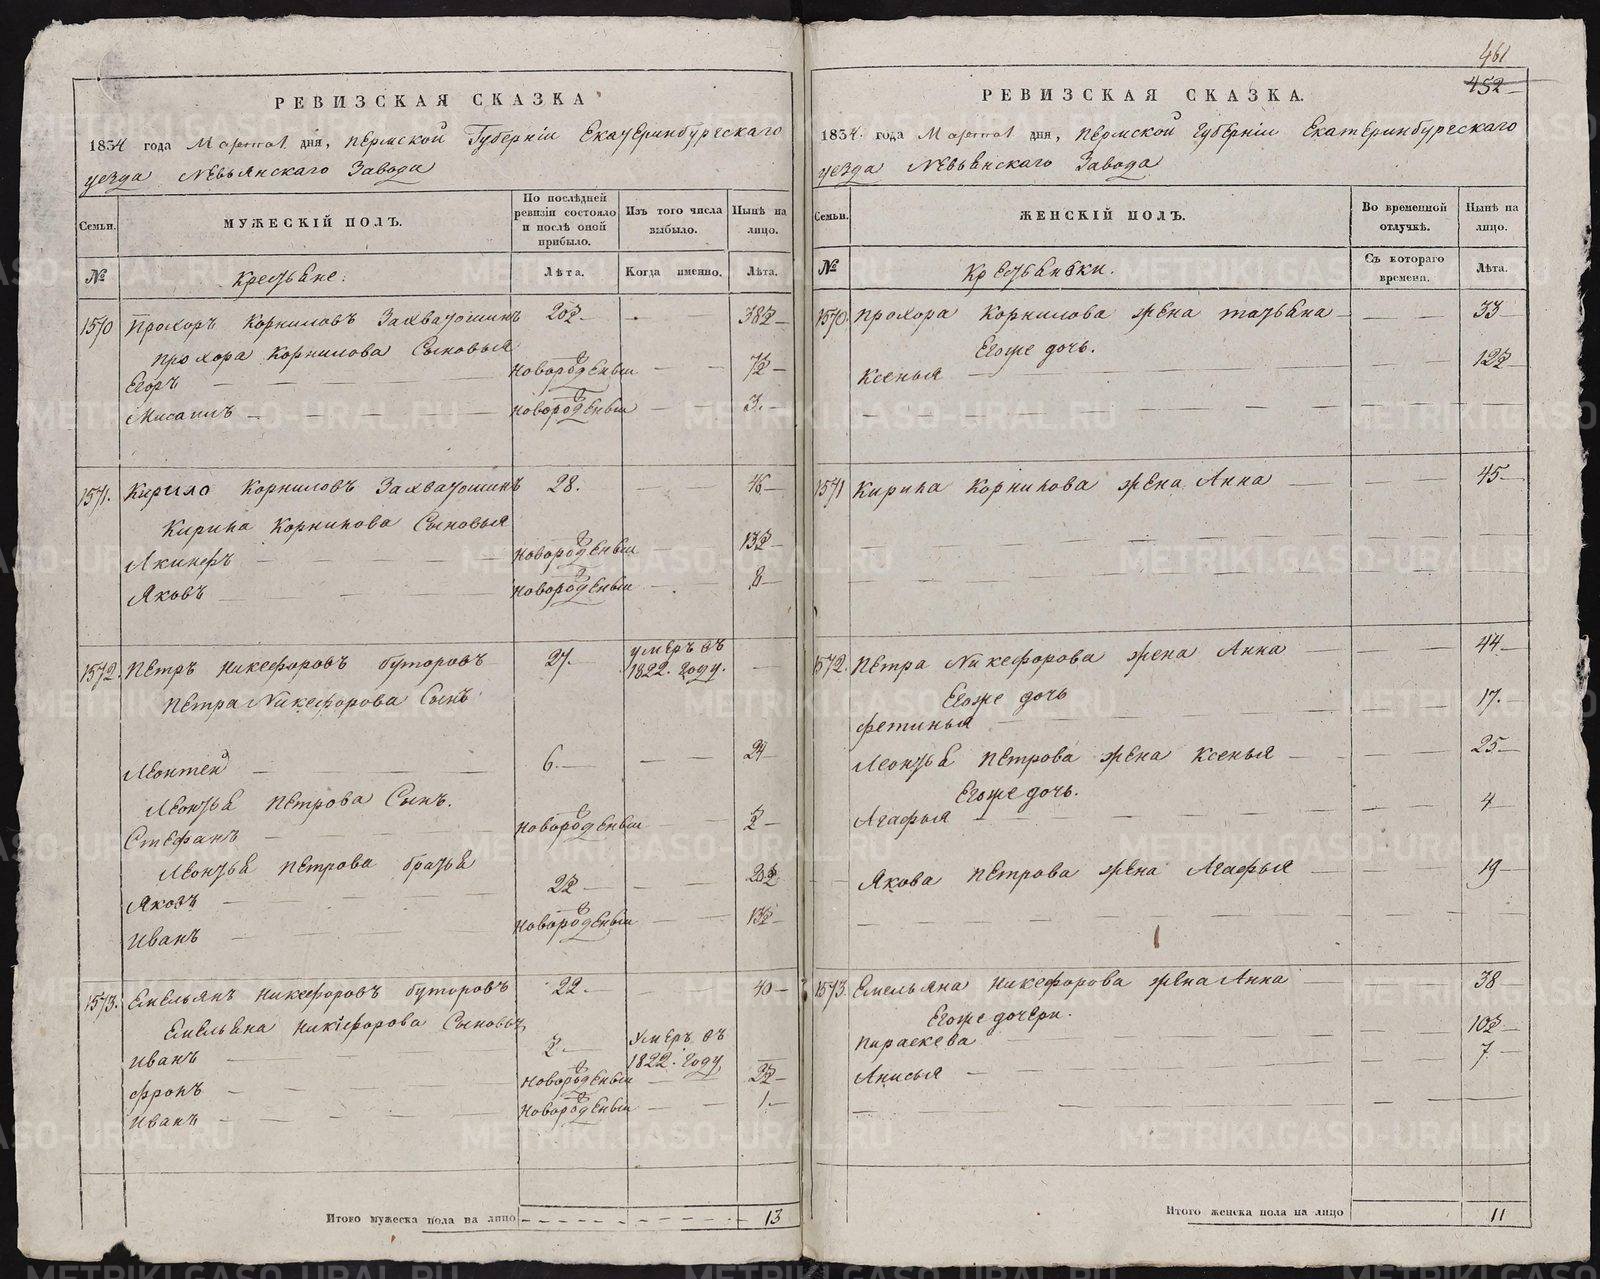 461
452
РЕВИЗСКАЯ СКАЗКА
1834 года дня, Пермской Губерніи Екатеринбургскаго
уезда Невьянскаго Завода
Семьи.
МУЖЕСКІЙ ПОЛЪ.
По послѣдней ревизіи состояло и послѣ оной прибыло.
Изъ того числа выбыло.
Нынѣ на лицо.
№
Крестьяне.
Лѣта.
Когда именно.
Лѣта.
1570 Прохоръ Корниловъ Захватошинъ
Прохора Корнилова Сыновья
Егоръ — — новорожденный — —
Мисаилъ — — новорожденный — 3.
1571. Кирило Корниловъ Захватошинъ 28. — — 46
Кирила Корнилова Сыновья
Акинфъ — — новорожденный — —
Яковъ — — новорожденный — 8
1572. Петръ Никефоровъ Буторовъ 27. умеръ въ 1822. году. —
Петра Никефорова Сынъ
Леонтей — — 6. — —
Леонтья Петрова Сынъ.
Стефанъ — — новорожденный —
Леонтья Петрова братья
Яковъ —
Иванъ — — новорожденный — —
1573. Емельянъ Никефоровъ Буторовъ 22. — — 40
Емельяна Никефорова Сыновья
Иванъ — умеръ въ 1822. году
Фролъ — новорожденный —
Иванъ — — новорожденный — — 1.
Итого мужеска пола на лицо 13
РЕВИЗСКАЯ СКАЗКА.
1834. года дня, Пермской Губерніи Екатеринбургскаго
уезда Невьянскаго Завода
Семьи.
ЖЕНСКІЙ ПОЛЪ.
Во временной отлучкѣ.
Нынѣ на лицо.
№
Крестьянки.
Съ котораго времена.
Лѣта.
1570. Прохора Корнилова жена Татьяна — — — 33
Егоже дочь.
Ксенья — —
1571 Кирила Корнилова жена Анна — — — 45
1572. Петра Никефорова жена Анна — — — 44
Егоже дочь
Фетинья — — 17.
Леонтья Петрова жена Ксенья — — — 25
Егоже дочь.
Агафья — — 4
Якова Петрова жена Агафья — — — 19
1573. Емельяна Никефорова жена Анна — — — 38
Егоже дочери.
Параскева —
Анисья — — 7
Итого женска пола на лицо 11
METRIKI.GASO-URAL.RU